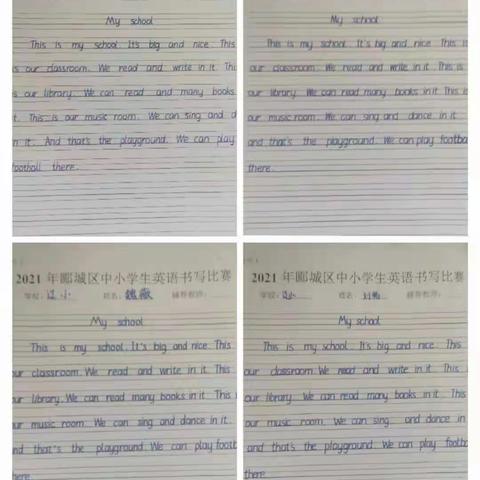 My school
This is my school. It's big and nice. This
is our classroom. We read and write in it. This
is our library. We can read and many books
it. This is our music room. We can sing and d
in it. And that's the playground. We can play
football there.
My school
This is my school. It's big and nice. This is
our classroom. We read and write in it. This is
our library. We can read many books in it This is
our music room. We can sing and dance in it.
and that's the playground. We can play footba
there.
2021 年郾城区中小学生英语书写比赛
学校: 辽小 姓名: 魏薇 辅导教师:
My school
This is my school. It's big and nice. This
our classroom. We read and write in it. This
our library. We can read many books in it. This
our music room. We can sing and dance in it.
and that's the playground. We can play footb
here.
2021 年郾城区中小学生英语书写比赛
学校: 姓名: 辅导教师:
My school
This is my school. It's big and nice. This
our classroom. We read and write in it. This
our library. We can read many books in it. This
our music room. We can sing and dance in
and that's the playground. We can play footba
there.